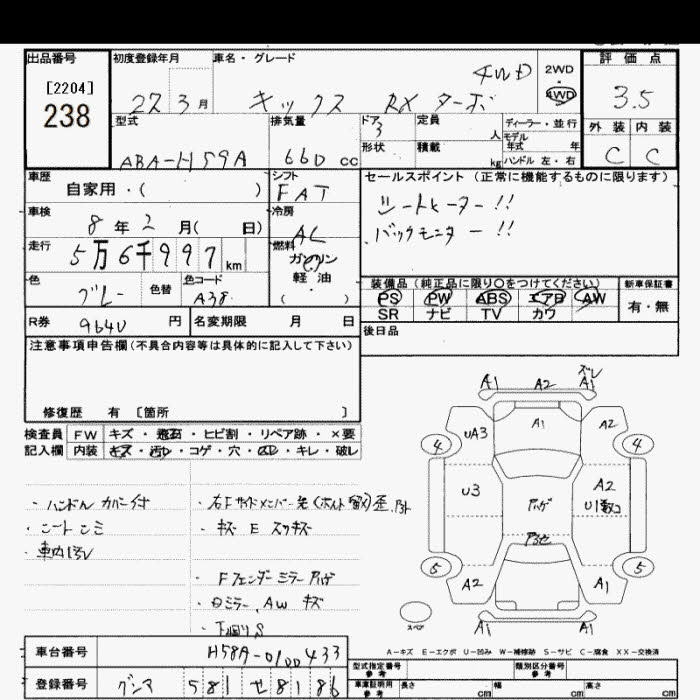 出品番号
[2204]
238
初度登録年月
27 3 月
車名・グレード
4WD
キックス RXターボ
2WD
・
4WD
評価点
3.5
外装 内装
C C
型式
ABA-H59A
排気量
660 cc
ドア
3
形状
定員
人
積載
kg
ディーラー・並行
モデル
年式 年
ハンドル 左・右
車歴
自家用・( )
シフト
FAT
セールスポイント(正常に機能するものに限ります)
シートヒーター!!
バックモニター!!
車検
8 年 2 月( 日)
冷房
AC
走行
5万6千997 km
燃料
ガソリン
軽油
( )
色
グレー
色替
色コード
A38
装備品(純正品に限り○をつけてください)
PS PW ABS エアB AW
SR ナビ TV カワ
新車保証書
有・無
R券 9640 円
名変期限 月 日
後日品
注意事項申告欄(不具合内容等は具体的に記入して下さい)
修復歴 有 〔箇所 〕
検査員 FW キズ・飛石・ヒビ割・リペア跡・×要
記入欄 内装 キズ・汚れ・コゲ・穴・スレ・キレ・破レ
・ハンドルカバー付
・シートシミ
・車内汚レ
・キズ E スリキズ
・Fフェンダーミラー
・ミラー、AW キズ
・下廻りS
A1 A2 ズレ A1
UA3 A1 A2
4 4
U3 A2
U1
5 5
A2 A1
スペア
A1 A1
A-キズ E-エクボ U-凹み W-補修跡 S-サビ C-腐食 XX-交換済
車台番号 H58A-0100433
登録番号 グンマ 581 せ 8186
型式指定番号
参考
類別区分番号
参考
車庫証明用
参考
長さ cm 幅 cm 高さ cm